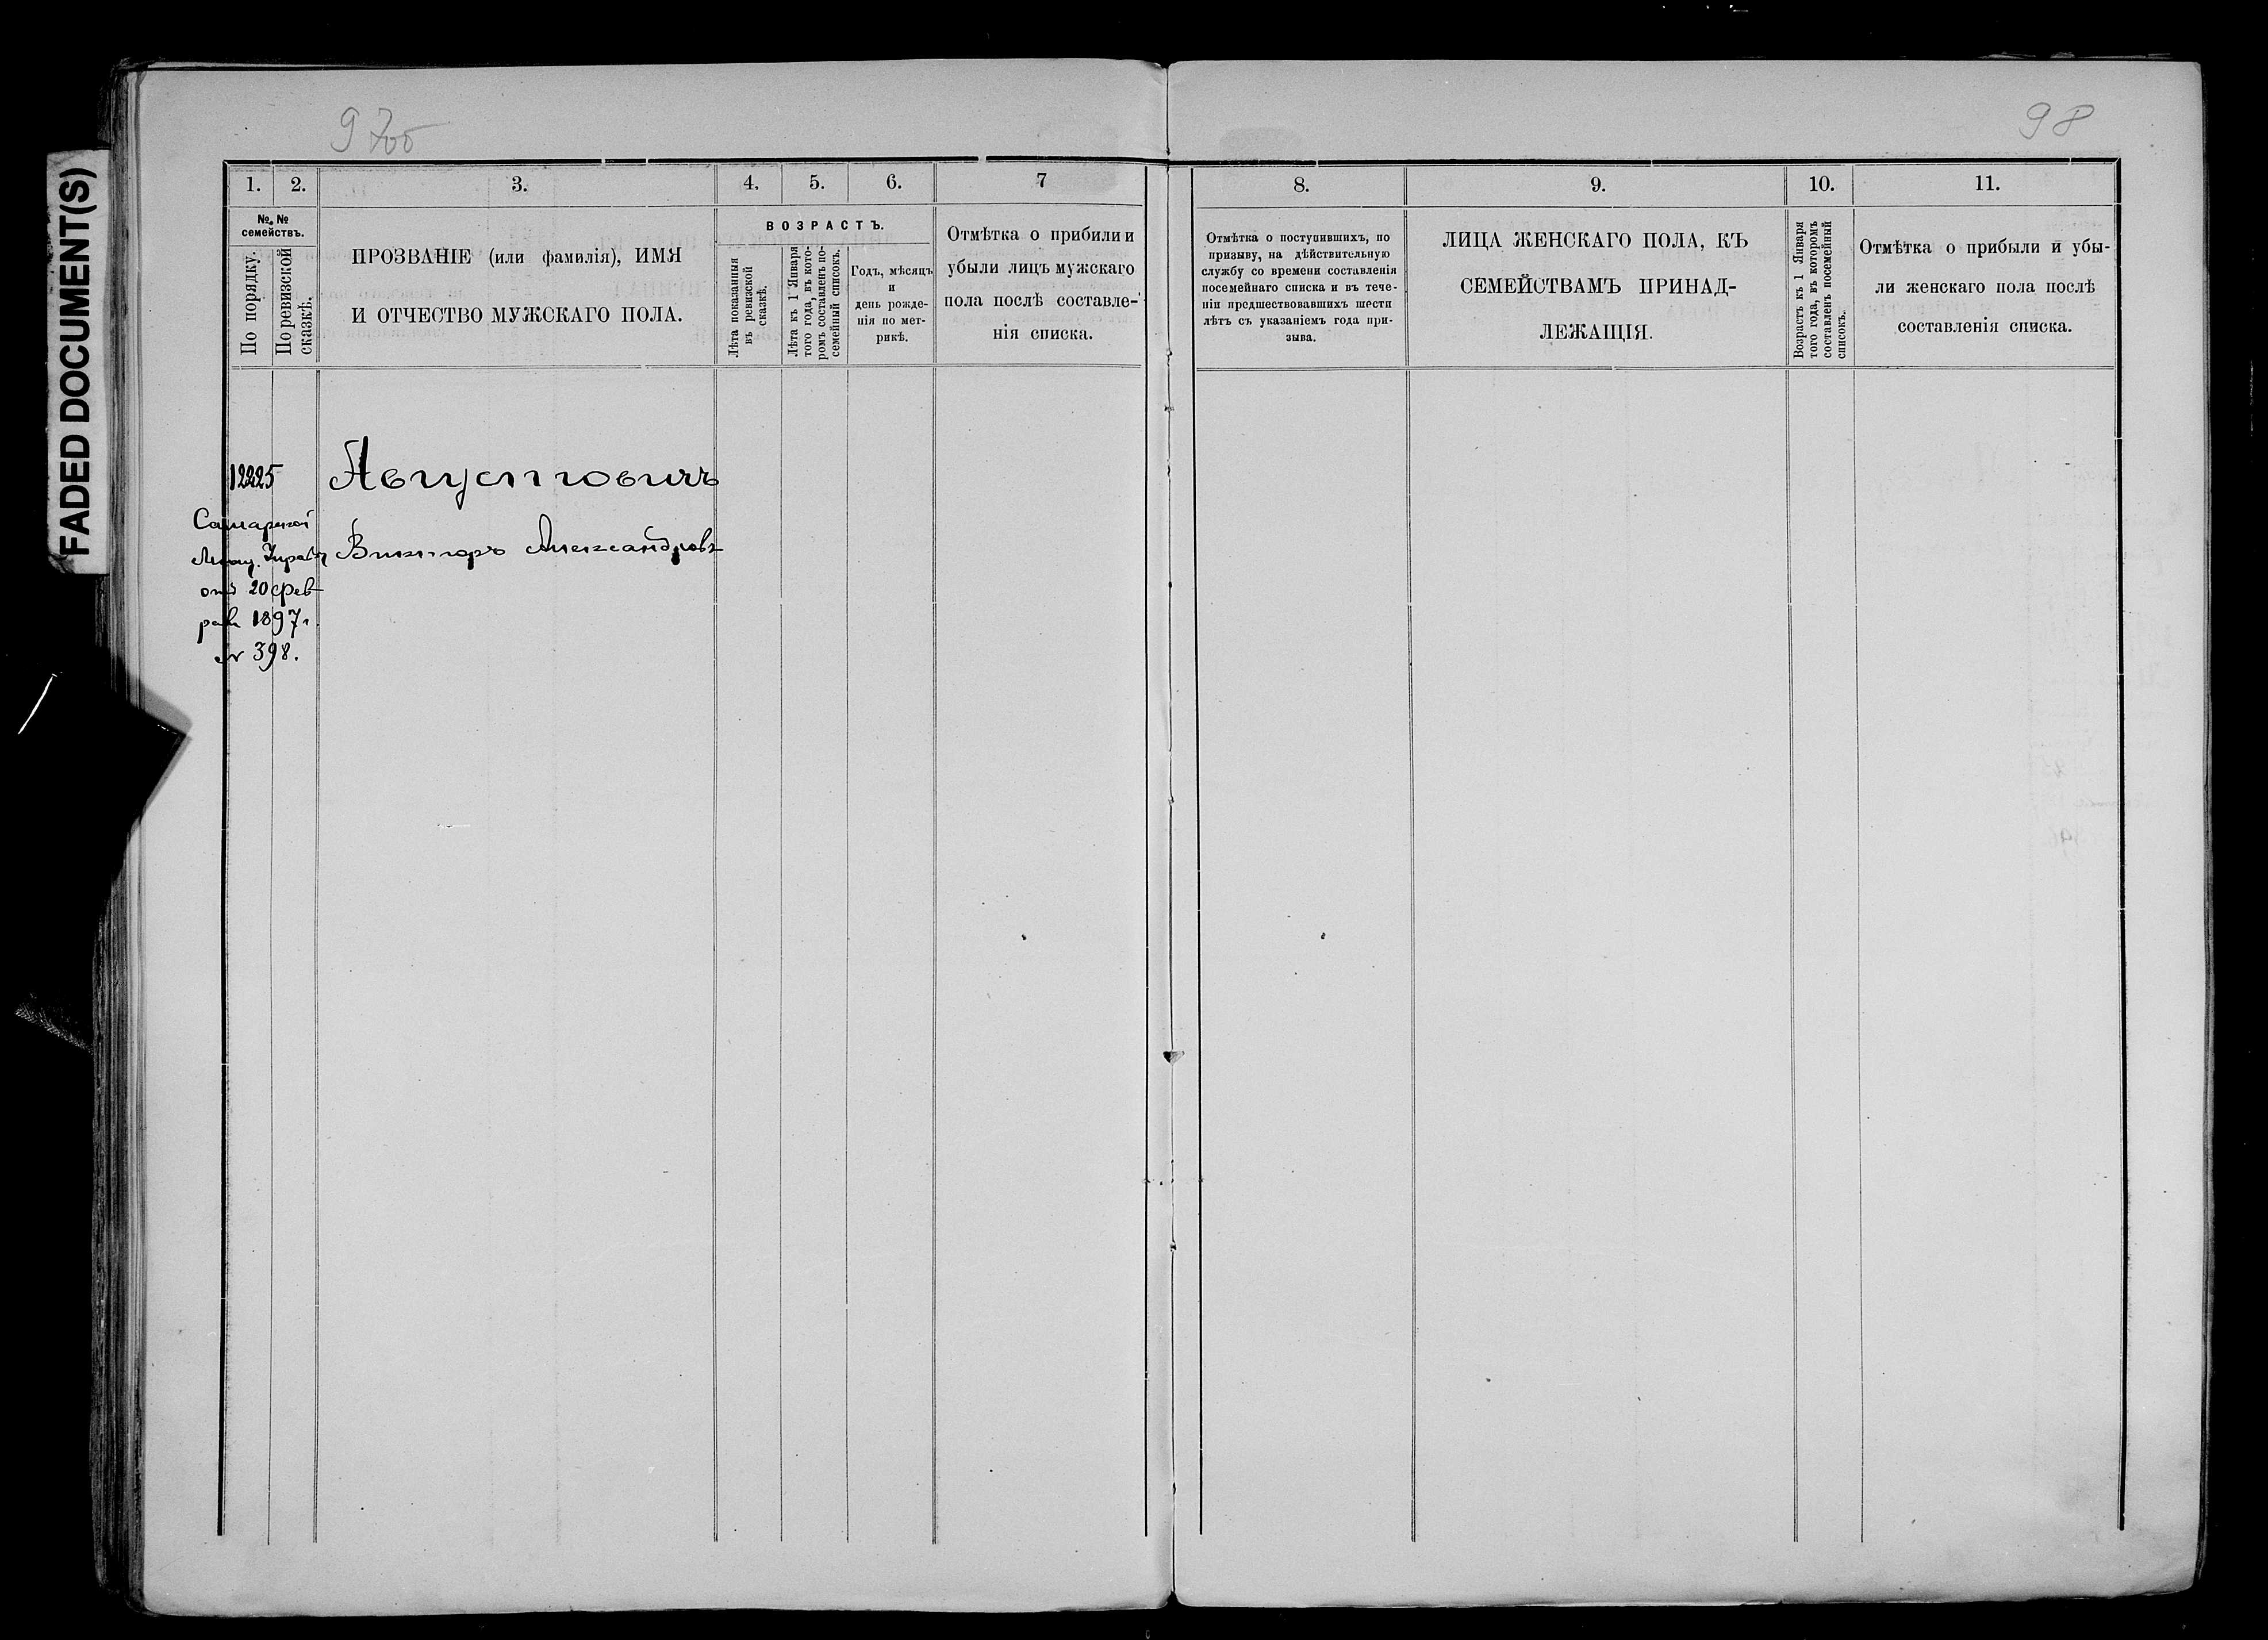 FADED DOCUMENT(S)
97об
98
1.
2.
3.
4.
5.
6.
7
8.
9.
10.
11.
№ №
семействъ.
По порядку.
По ревизской
сказкѣ.
ПРОЗВАНІЕ (или фамилія), ИМЯ
И ОТЧЕСТВО МУЖСКАГО ПОЛА.
ВОЗРАСТЪ.
Лѣта показанныя
въ ревизской
сказкѣ.
Лѣта къ 1 Января
того года, въ кото-
ромъ составленъ по-
семейный списокъ.
Годъ, мѣсяцъ
и
день рожде-
нія по мет-
рикѣ.
Отмѣтка о прибили и
убыли лицъ мужскаго
пола послѣ составле-
нія списка.
Отмѣтка о поступившихъ, по
призыву, на дѣйствительную
службу со времени составленія
посемейнаго списка и въ тече-
ніи предшествовавшихъ шести
лѣтъ съ указаніемъ года при-
зыва.
ЛИЦА ЖЕНСКАГО ПОЛА, КЪ
СЕМЕЙСТВАМЪ ПРИНАД-
ЛЕЖАЩІЯ.
Возрастъ къ 1 Января
того года, въ которомъ
составленъ посемейный
списокъ.
Отмѣтка о прибыли и убы-
ли женскаго пола послѣ
составленія списка.
12225
Августовичъ
Самарской
Мѣщ. Управы
отъ 20 фев
раля 1897 г.
№ 398.
Викторъ Александровъ